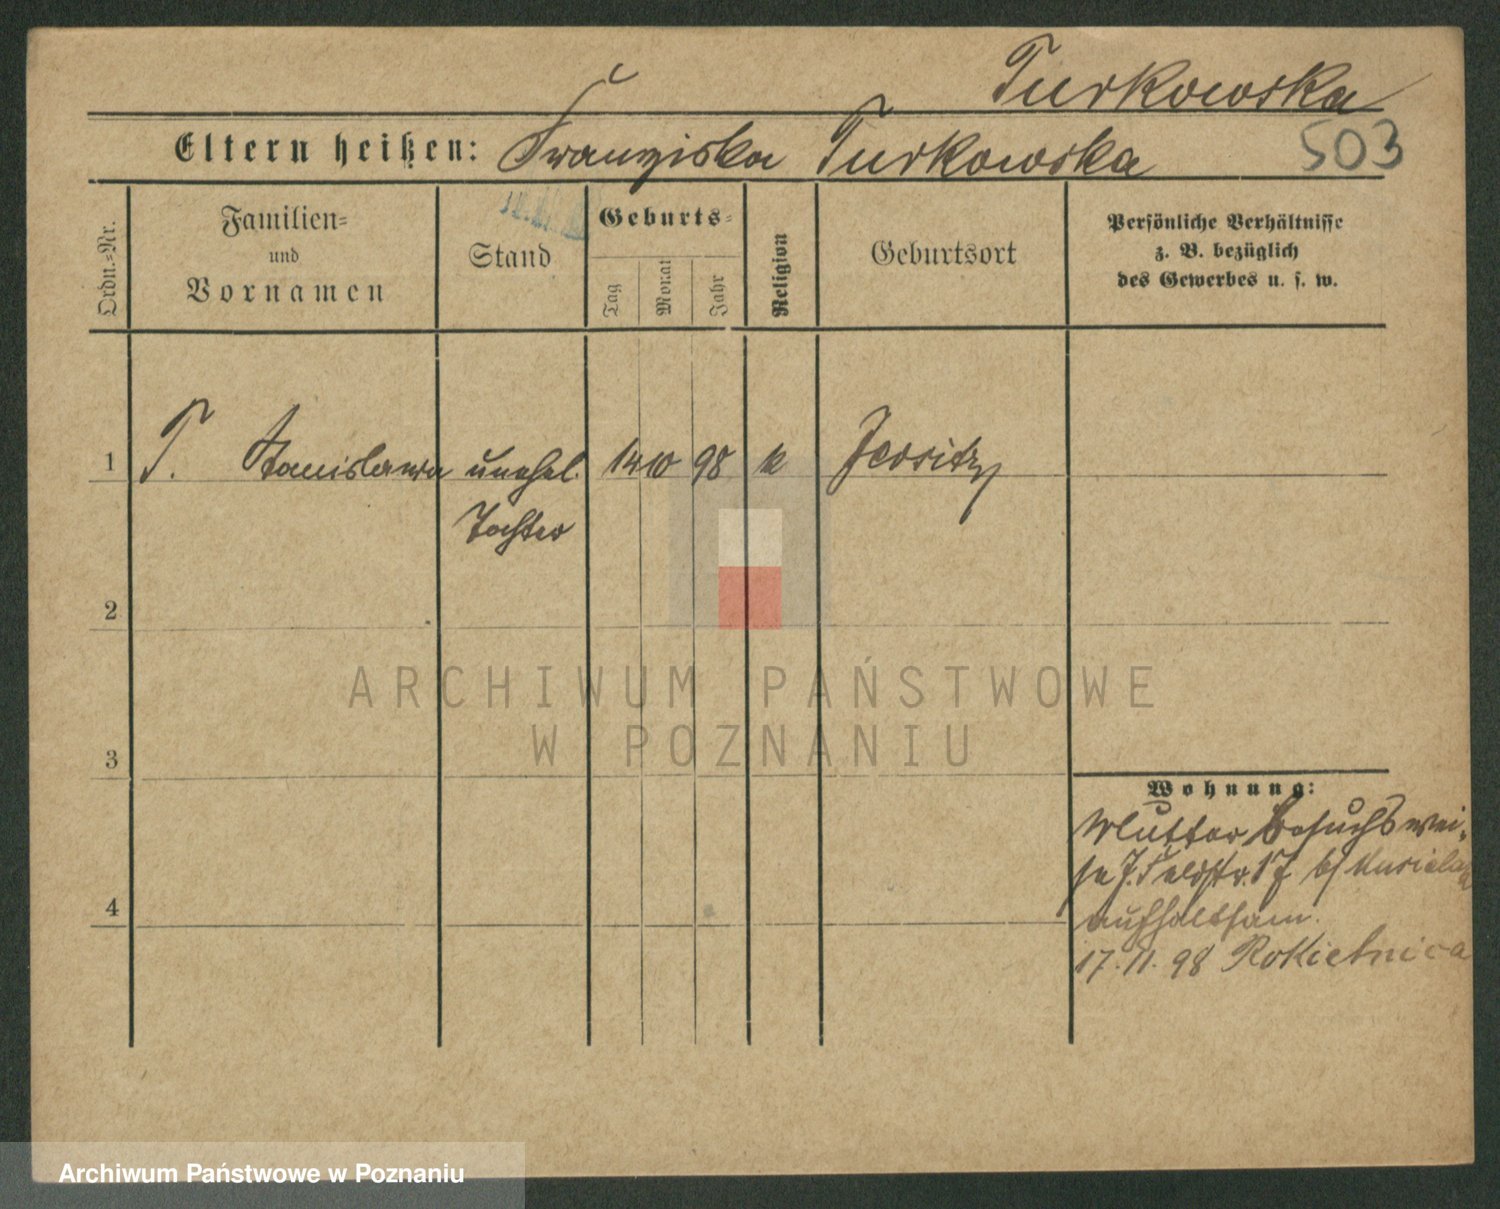 Turkowska
Eltern heißen: Franziska Turkowska
503
Ordn.-Nr.
Familien-
und
Vornamen
Stand
Geburts-
Tag
Monat
Jahr
Religion
Geburtsort
Persönliche Verhältnisse
z. B. bezüglich
des Gewerbes u. s. w.
1 T. Stanislawa unehel. 14 10 98 k Jersitz
Tochter
2
3
4
Wohnung:
Mutter besuchswei-
se J. Feldstr. 17 b/
aufhaltsam.
17.11.98 Rokietnica
ARCHIWUM PAŃSTWOWE
W POZNANIU
Archiwum Państwowe w Poznaniu